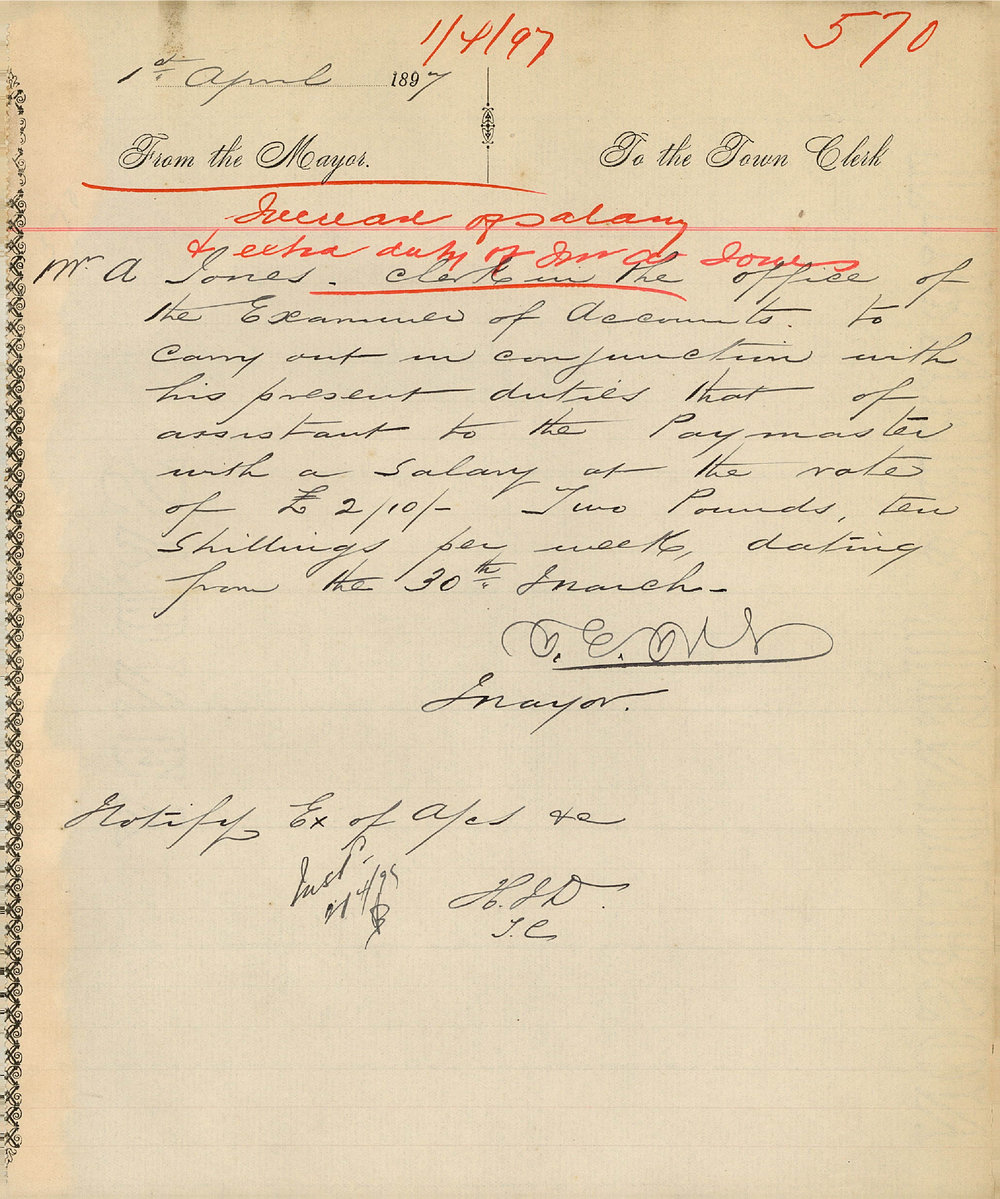 1/4/97
570
1st April 1897
From the Mayor.
To the Town Clerk
Increase of salary
& extra duty of Mr A Jones
Mr A Jones - clerk in the office of
the Examiner of Accounts. to
carry out in conjunction with
his present duties that of
assistant to the Paymaster
with a salary at the rate
of £2/10/- Two Pounds, ten
shillings per week, dating
from the 30th March -
Mayor.
Notify Ex of A/cs &c
H.J.D.
T.C